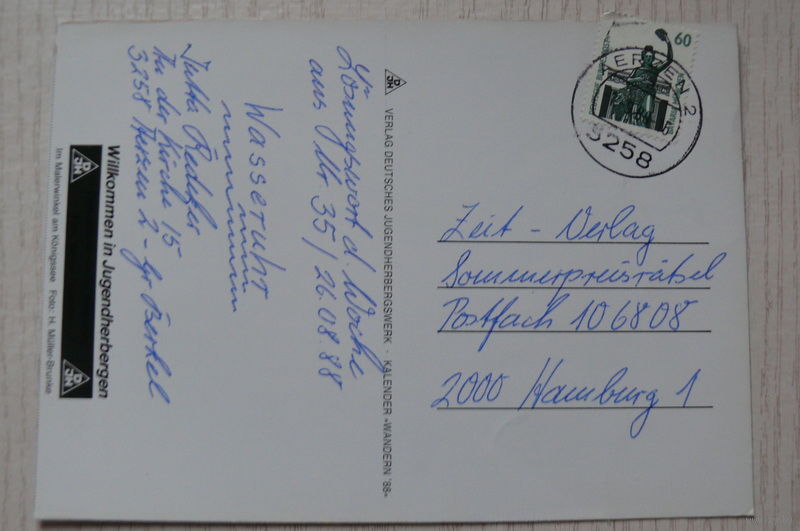 Lösungswort d. Woche
aus Nr. 35 / 26.08.88
Wasseruhr
Jutta
In der Kirche 15
3258 Aerzen 2 - Gr. Berkel
Willkommen in Jugendherbergen
Im Malerwinkel am Königssee Foto: H. Müller-Brunke
VERLAG DEUTSCHES JUGENDHERBERGSWERK · KALENDER »WANDERN '88«
60
AERZEN 2
3258
Zeit - Verlag
Sommerpreisrätsel
Postfach 106808
2000 Hamburg 1